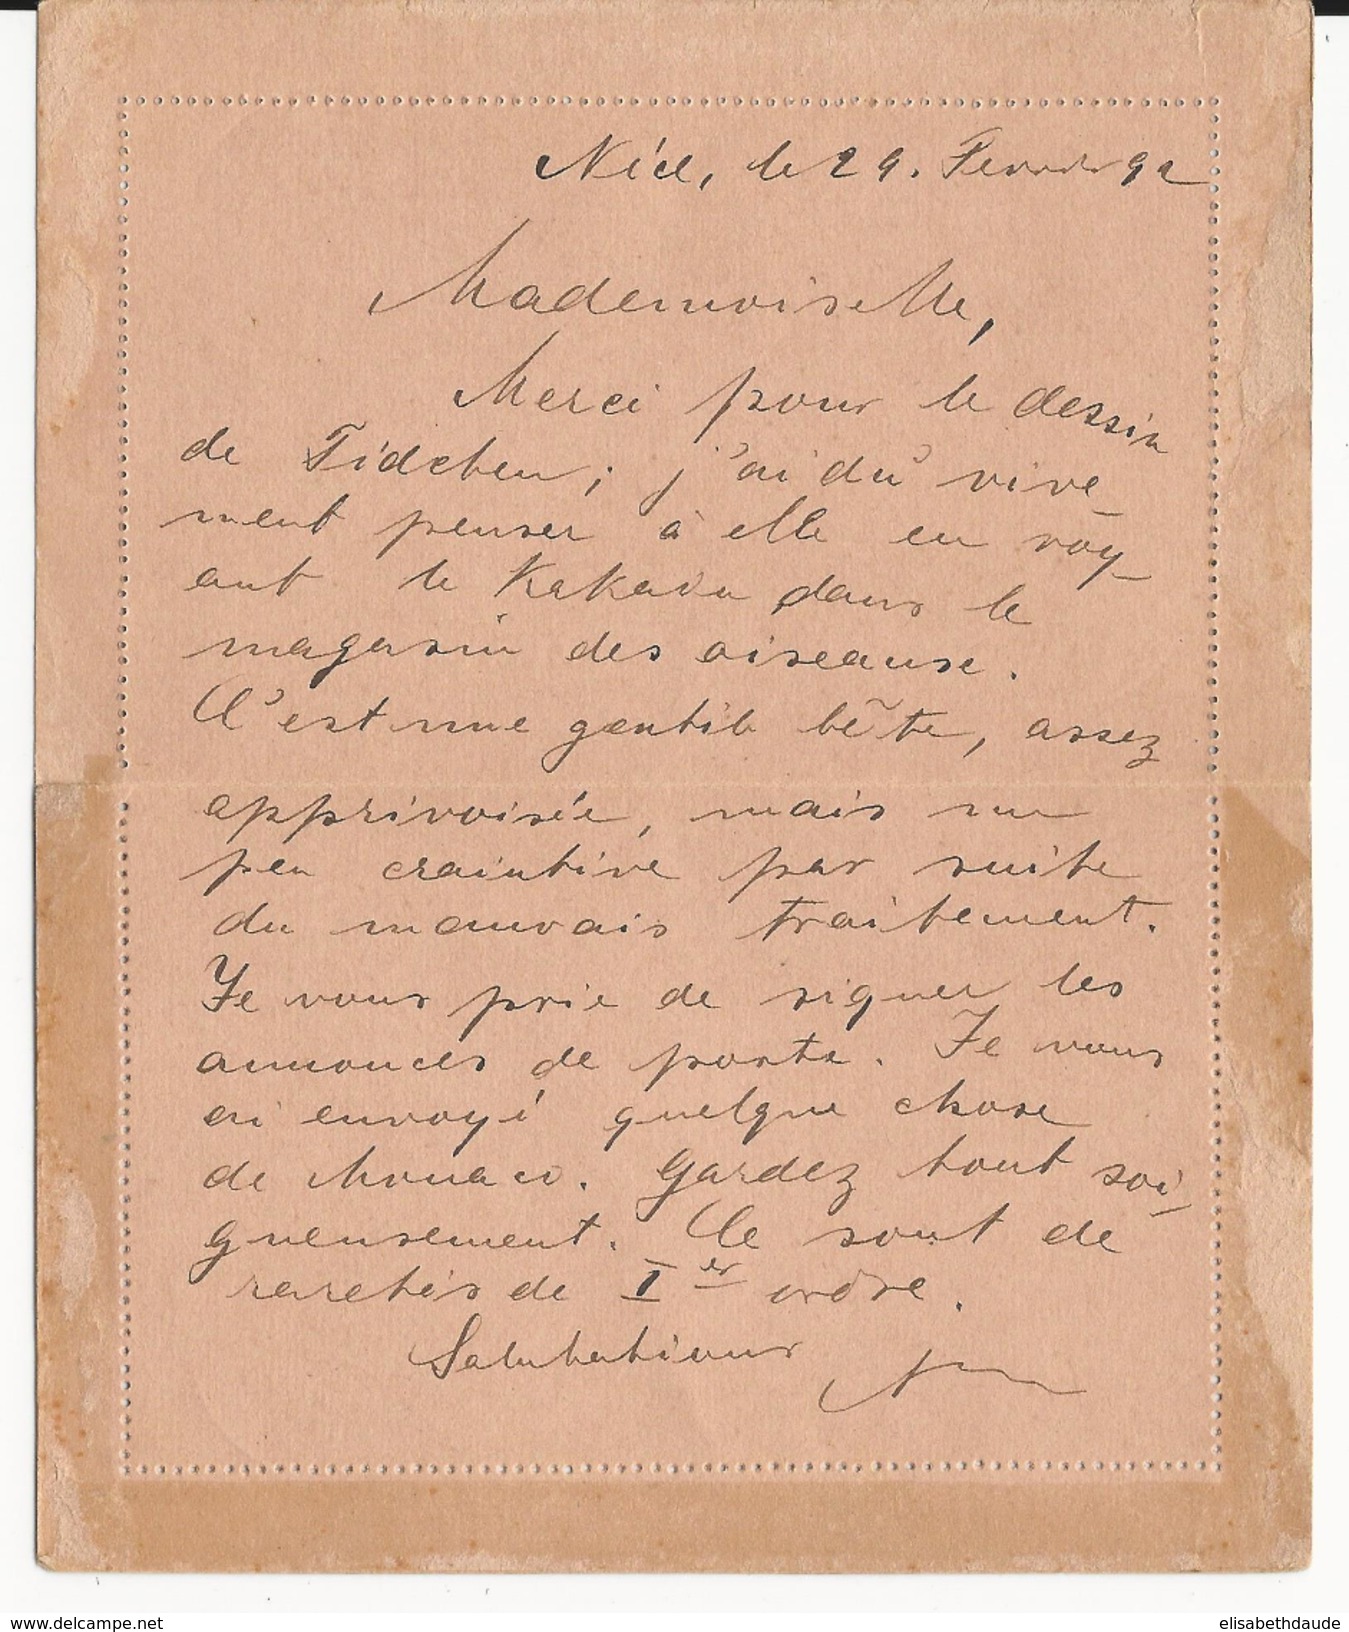 Nice, le 29. Fevrier 92
Mademoiselle,
Merci pour le dessin
de Fidchen; j'ai dû vive-
ment penser à elle en voy-
ant le Kakadu dans le
magasin des oiseause.
C'est une gentile bête, assez
apprivoisée, mais un
peu craintive par suite
du mauvais traitement.
Je vous prie de signer les
annonces de poste. Je vous
ai envoyé quelque chose
de Monaco. Gardez tout soi-
gneusement. Ce sont de
raretés de Ier ordre.
Salutations
www.delcampe.net
elisabethdaude